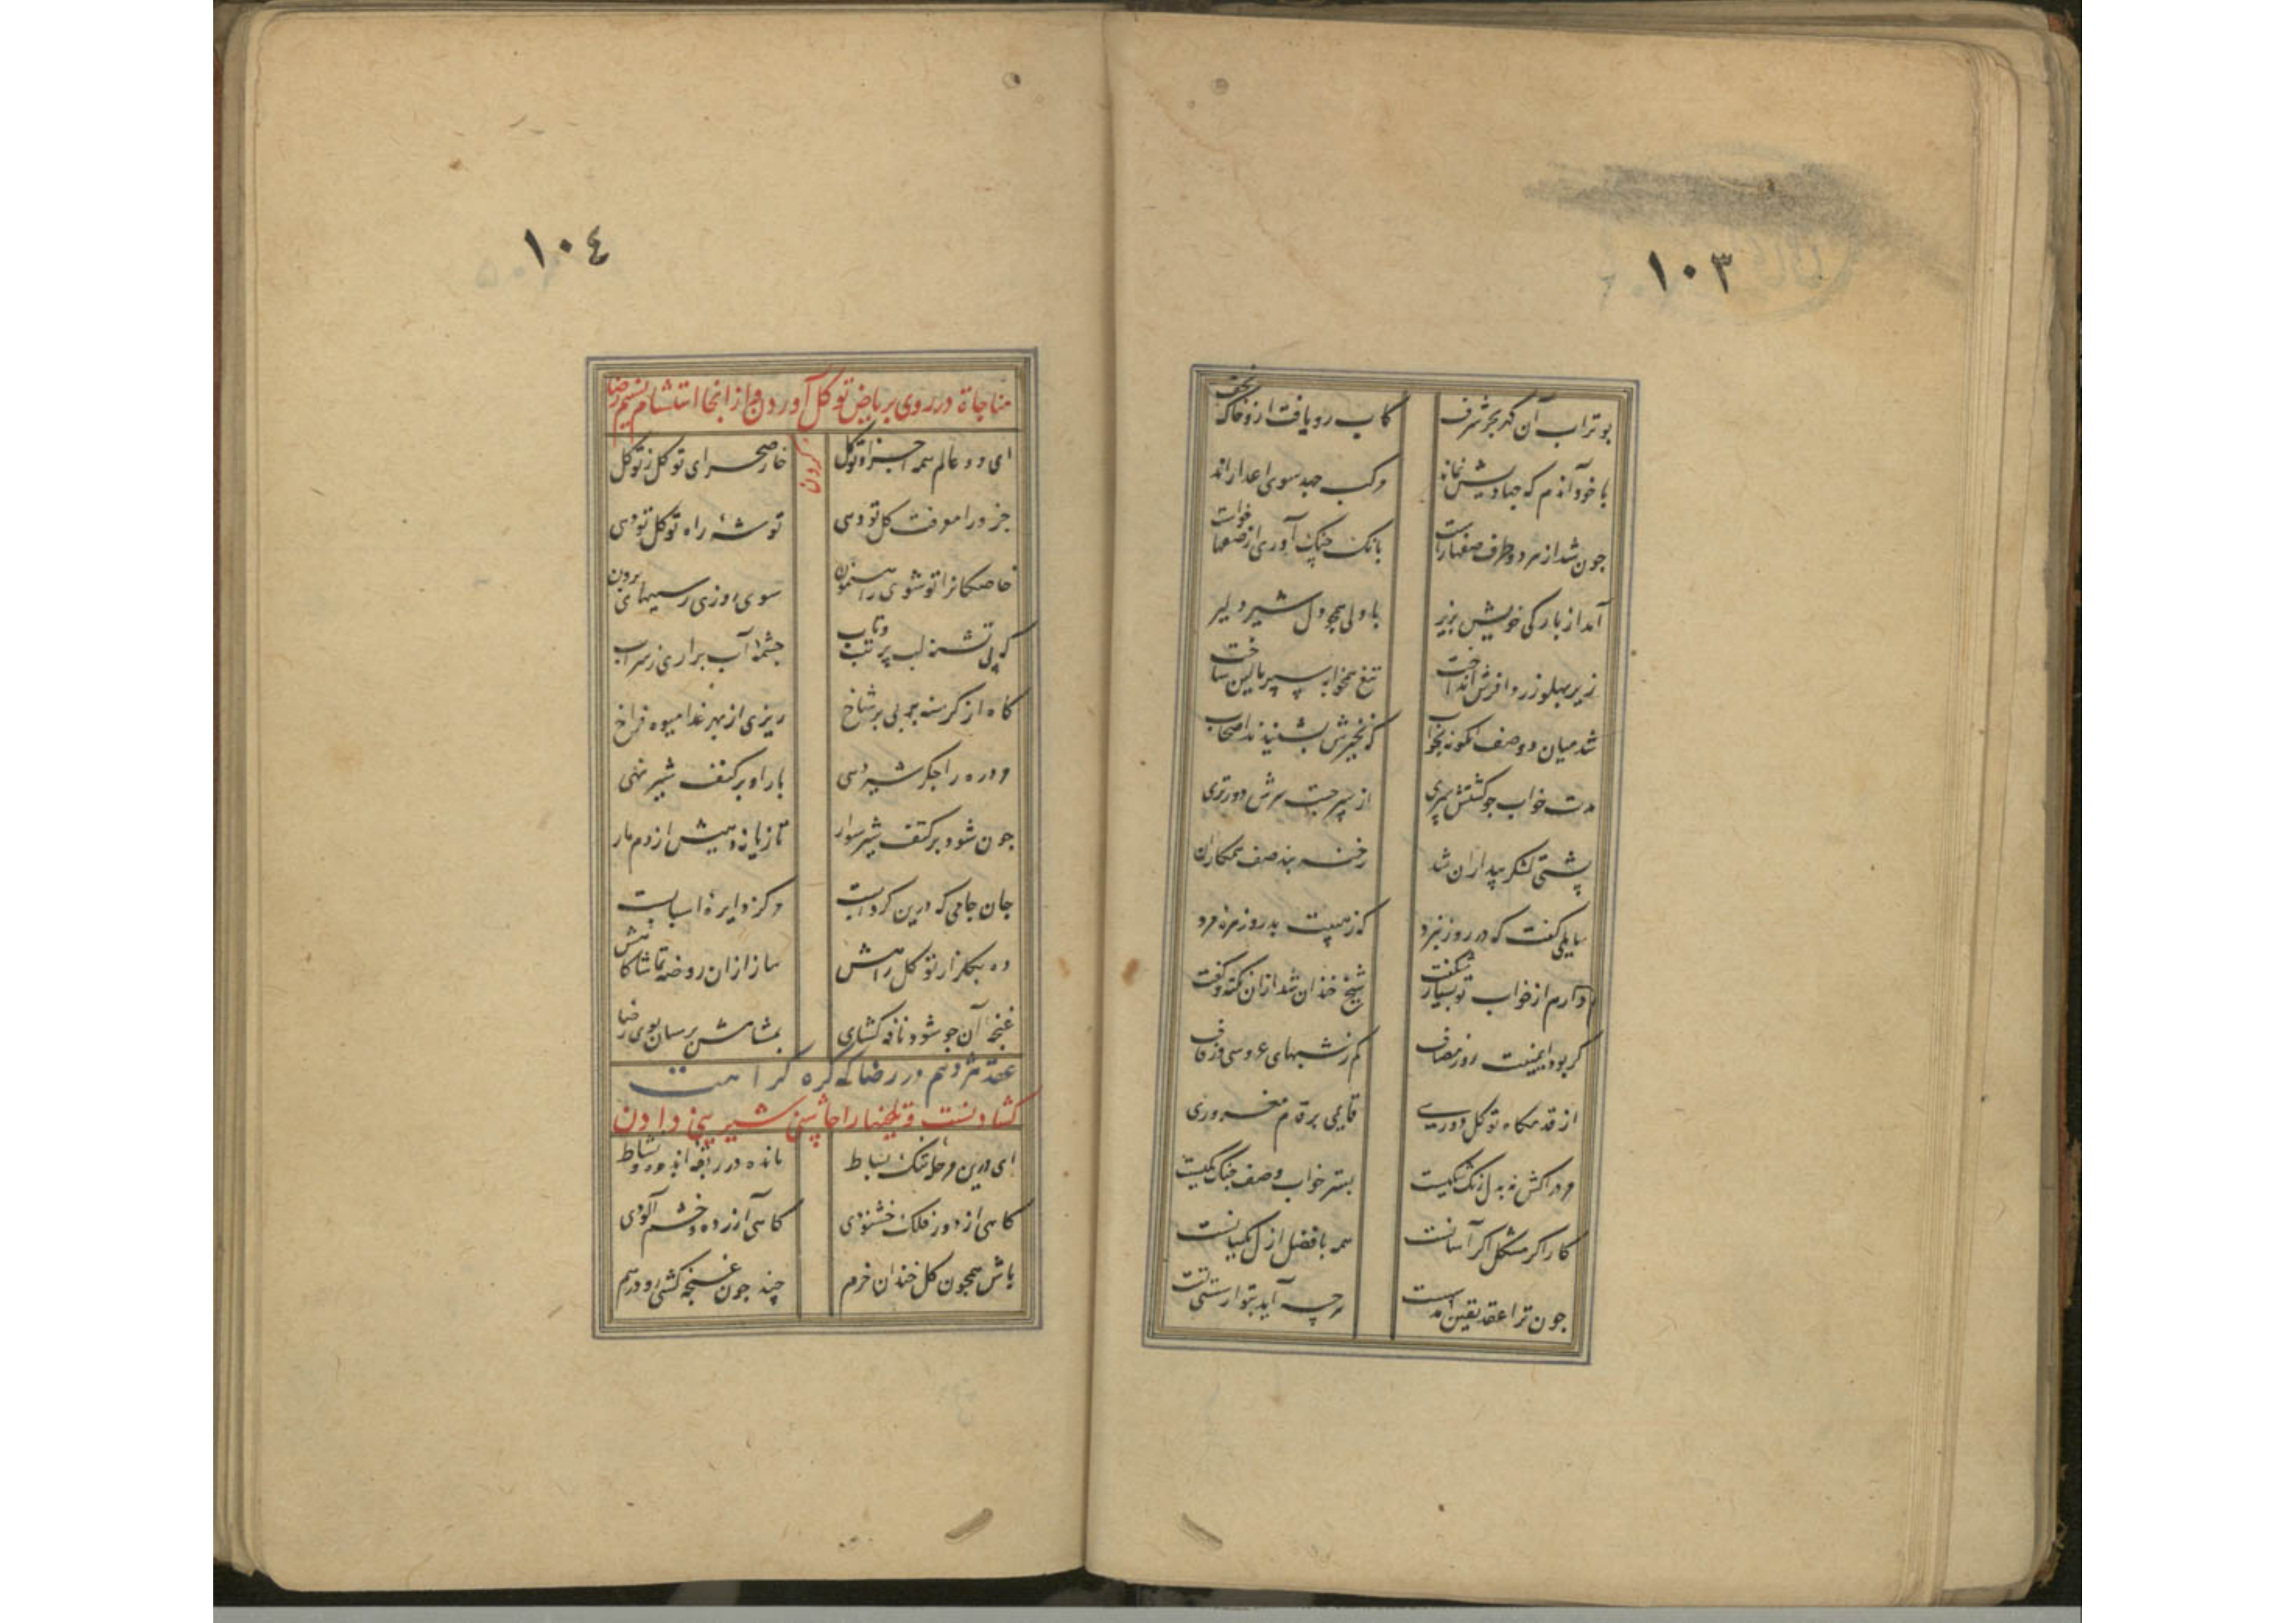 ١٠٣
بوتراب آن گهر بحر شرف کاب رو یافت ازو خاک نجف
با خود آندم که جهادیش نماند مرکب جهد سوی اعدا راند
چون شد از هر دو طرف صفها راست بانک جنک آوری از صفها خواست
آمد از بارکی خویش بزیر با دلی همچو دل شیر دلیر
زیر پهلو زردا فرش انداخت تیغ همخوابه سپر بالین ساخت
شد میان دو صف آنگونه بخواب که نخیرش بشنیدند اصحاب
مدت خواب چو گشتش سپری از سپر جست سرش دورتری
پشتی لشکر بیداران شد رخنه بند صف همکاران
سایلی گفت که در روز نبرد که زهیبت بدرد زهره مرد
دارم از خواب تو بسیار شگفت شیخ خندان شد ازان نکته و گفت
گر بود ایمنیت روز مصاف کم ز شبهای عروسی و زفاف
از قدمگاه توکل دوری قایمی بر قدم مغروری
مرد را کش نه بدل زنگ شکیست بستر خواب و صف جنگ یکیست
کار اگر مشکل اگر آسانست همه با فضل ازل یکسانست
چون ترا عقد یقین آمد سست هرچه آید بتو از سستی تست
١٠٤
مناجاة در روی بریاض توکل آوردن و از انجا استشمام نسیم رضا کردن
ای دو عالم همه اجزا و تو کل خار صحرای توکل ز تو گل
جزو را معرفت کل تو دهی توشهٔ راه توکل تو دهی
خاصگانرا تو شوی راهنمون سوی روزی ز سببهای برون
گه پی تشنه لب پر تب و تاب چشمهٔ آب براری ز سراب
گاه از گرسنه چوبی بر شاخ ریزی از بهر غذا میوه فراخ
مرد ره را جگر شیر دهی بار او بر کتف شیر نهی
چون شود بر کتف شیر سوار تازیانه دهیش از دم مار
جان جامی که درین گردابست مرکز دایرهٔ اسبابست
ده بگلزار توکل راهش ساز ازان روضه تماشاگاهش
غنچهٔ آن چو شود نافه گشای بمشامش برسان بوی رضا
عقد هژدهم در رضا که گره کراهت
گشادنست و تلخیها را چاشنی شیرینی دادن
ای درین مرحلهٔ تنگ بساط مانده در ربقهٔ اندوه و نشاط
گاهی از دور فلک خشنودی گاهی آزرده و خشم آلودی
باش همچون گل خندان خرم چند چون غنچه کشی رو در هم